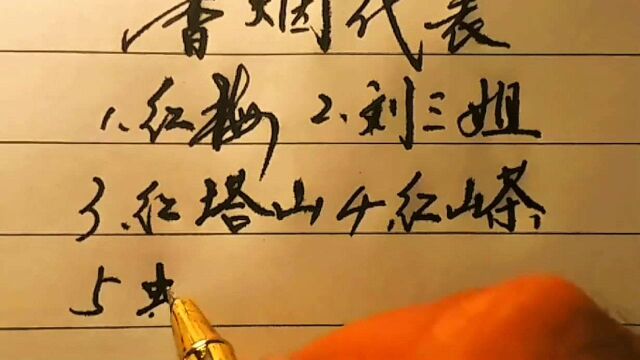 香烟代表
1、红梅 2、刘三姐
3、红塔山 4、红山茶
5